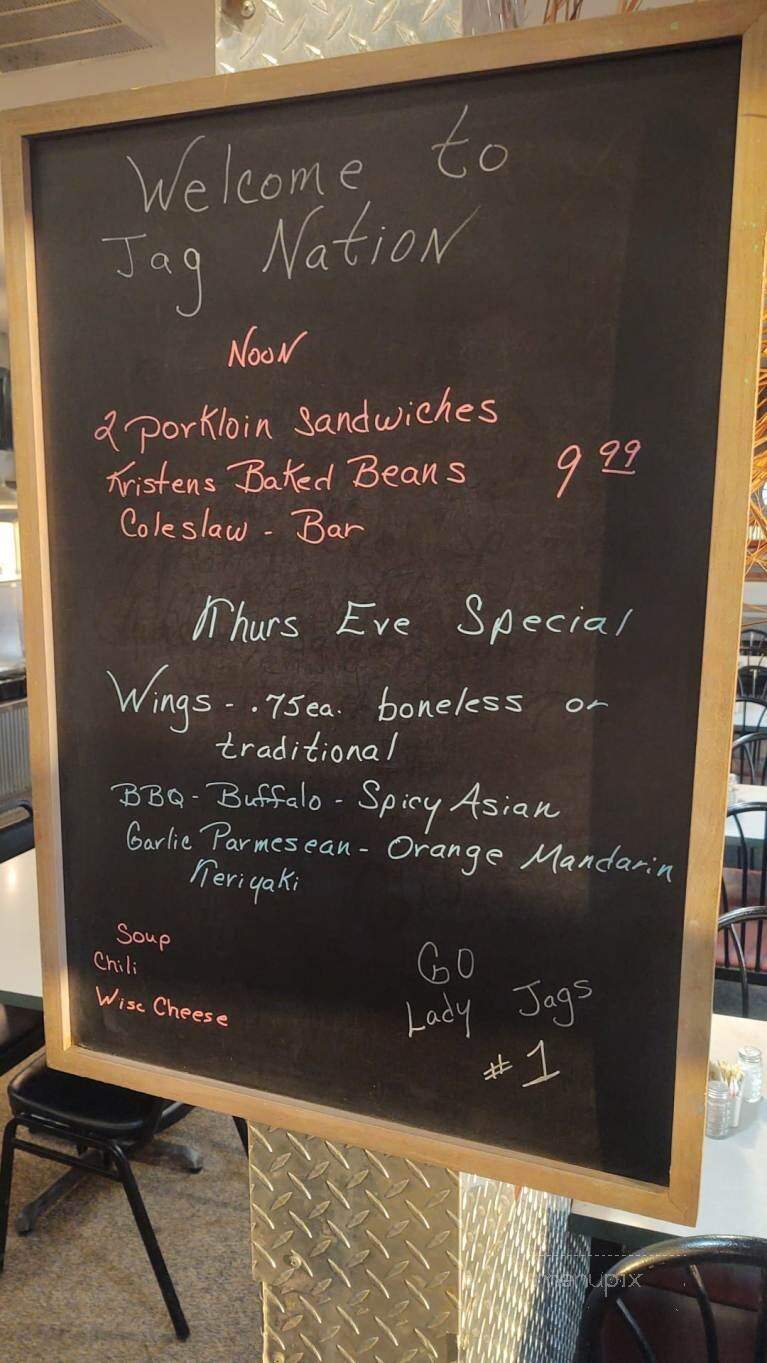 Welcome to
Jag Nation
Noon
2 Porkloin Sandwiches
Kristens Baked Beans 9 99
Coleslaw - Bar
Thurs Eve Special
Wings - .75ea. boneless or
traditional
BBQ - Buffalo - Spicy Asian
Garlic Parmesean - Orange Mandarin
Teriyaki
Soup
Chili
Wisc Cheese
GO
Lady Jags
#1
menupix